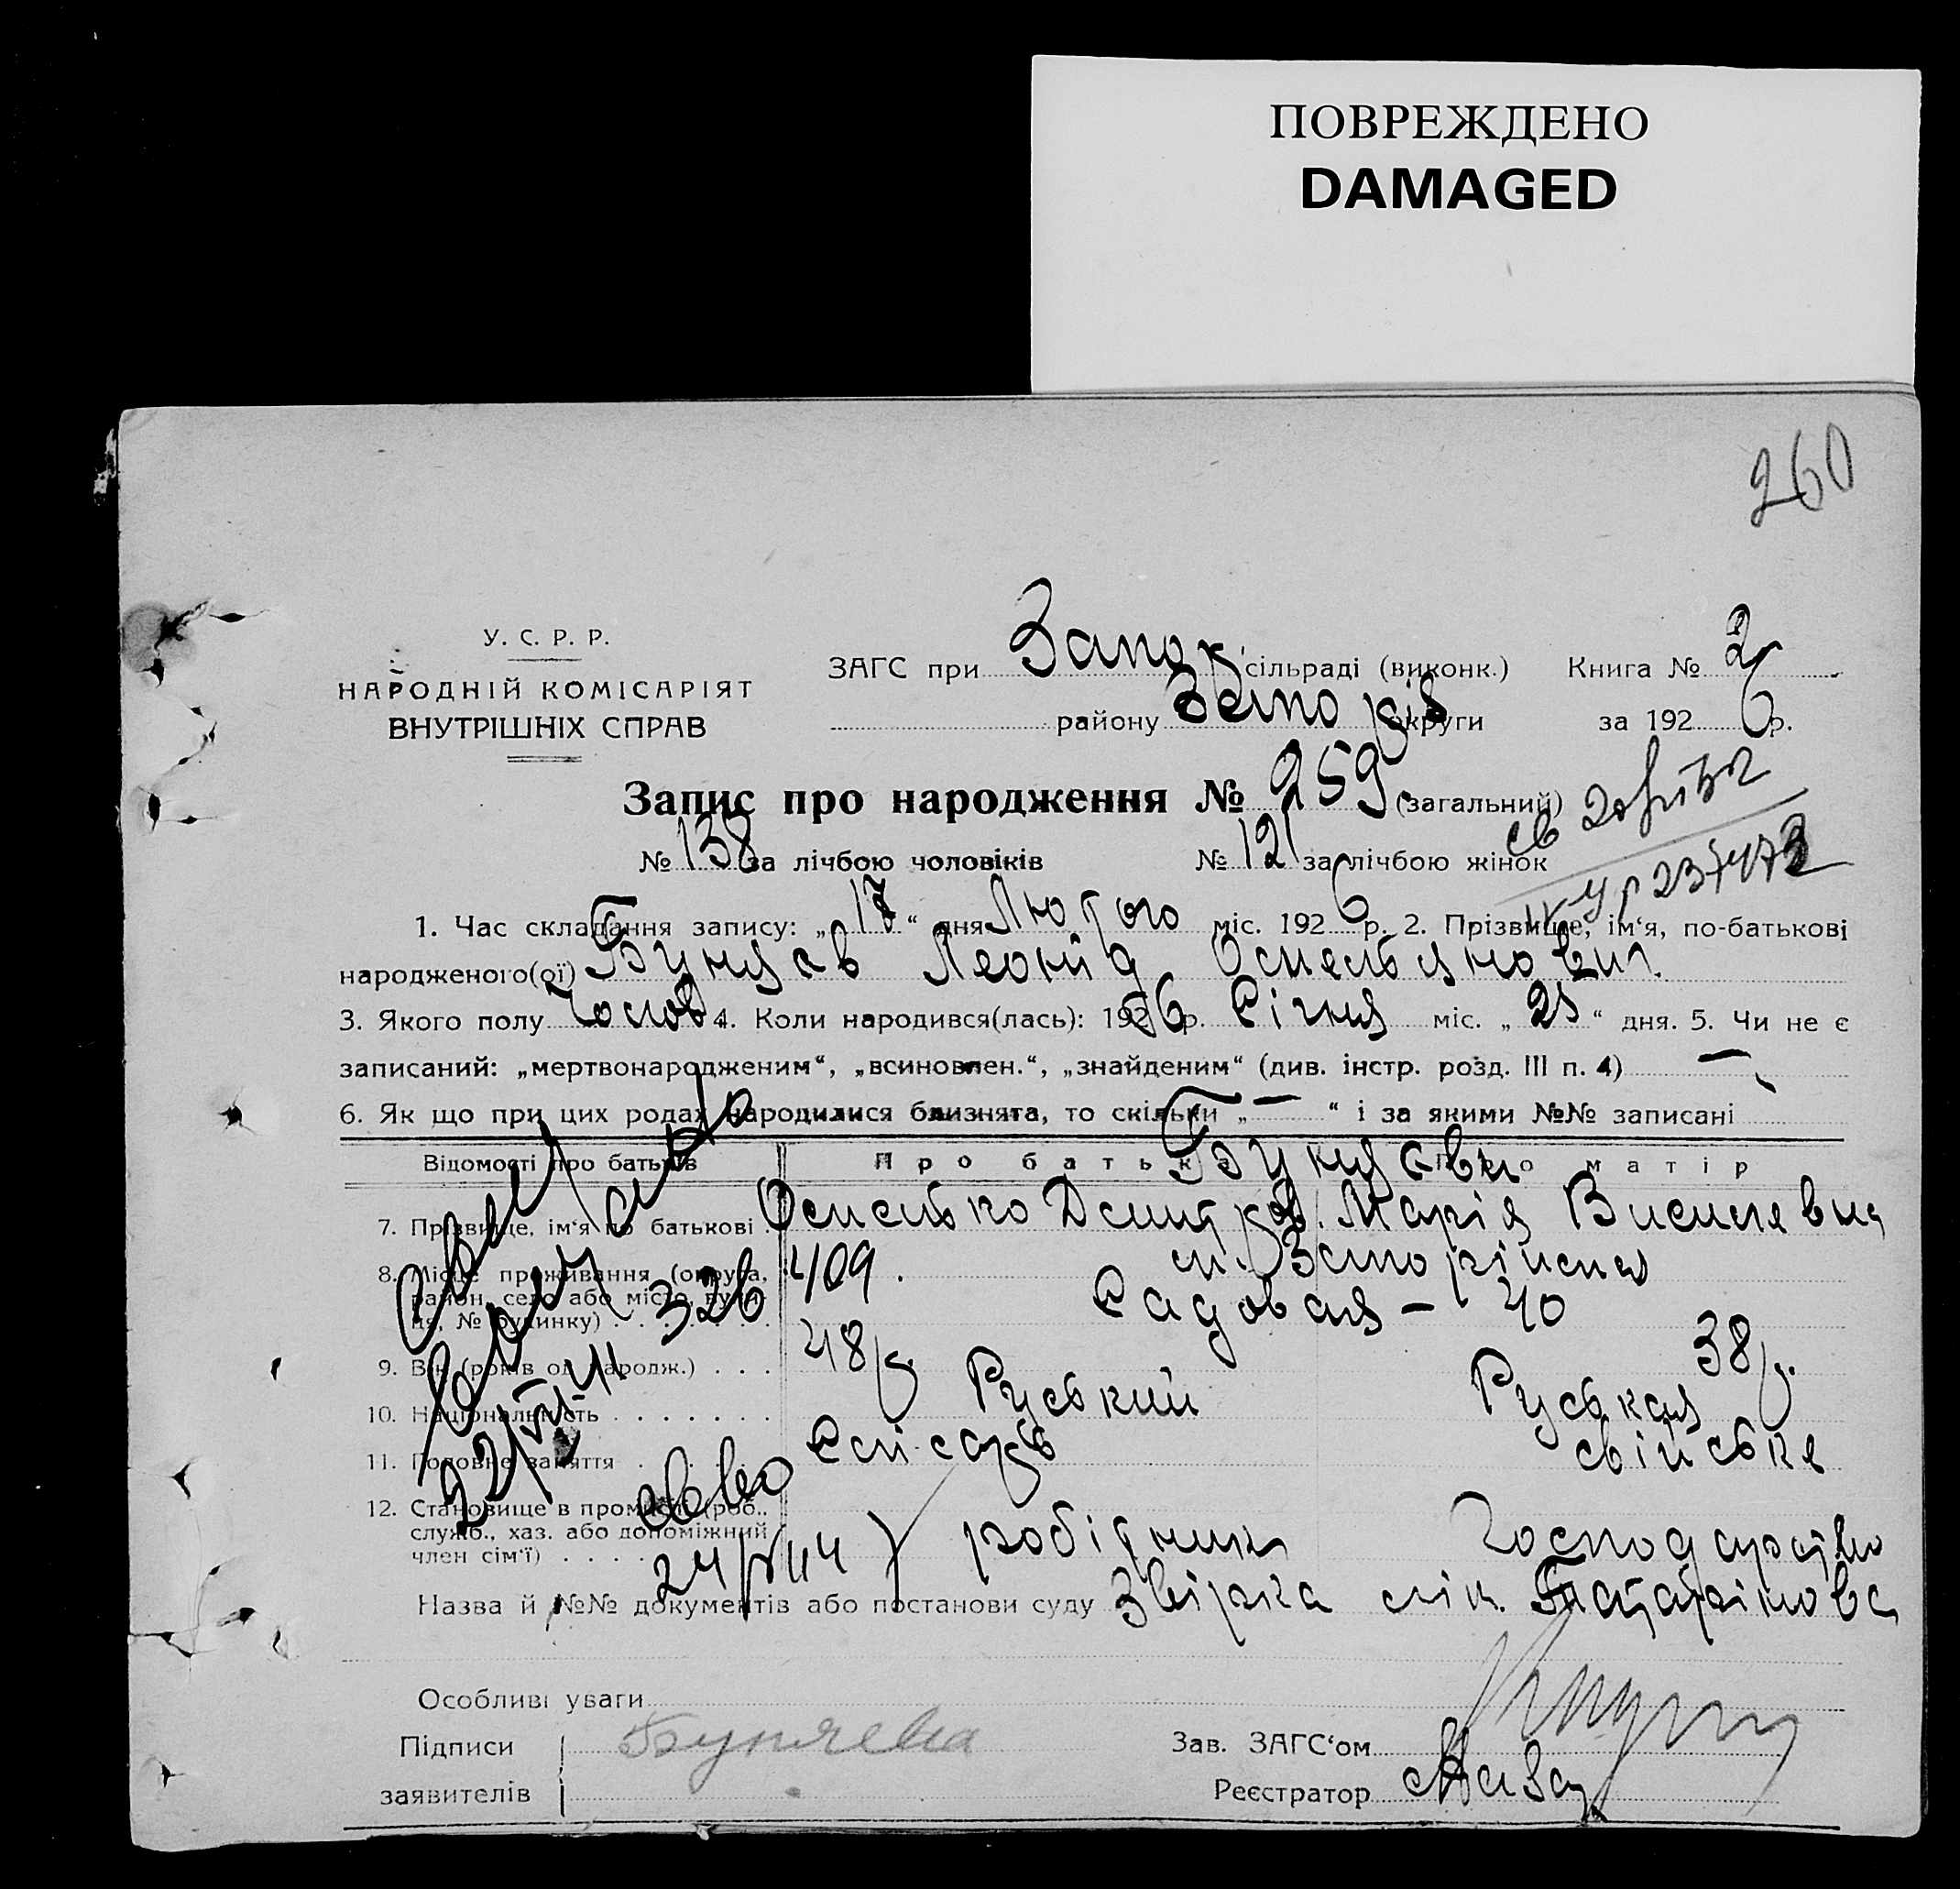 ПОВРЕЖДЕНО
DAMAGED
260
У. С. Р. Р.
НАРОДНІЙ КОМІСАРІЯТ
ВНУТРІШНІХ СПРАВ
ЗАГС при Запор. сільраді (виконк.) Книга № 2
району Запоріз округи за 1926 р.
Запис про народження № 259 (загальний)
№ 138 за лічбою чоловіків № 121 за лічбою жінок
1. Час складання запису: „17“ дня Лютого міс. 1926 р. 2. Прізвище, ім‘я, по-батькові
народженого(ої) Буняєв Леонід Омельянович
3. Якого полу Чолов 4. Коли народився(лась): 1926 р. Січня міс. „25“ дня. 5. Чи не є
записаний: „мертвонародженим“, „всиновлен.“, „знайденим“ (див. інстр. розд. III п. 4) —
6. Як що при цих родах народилися близнята, то скільки „—“ і за якими №№ записані
Відомості про батьків Про батька Про матір
Буняєви
7. Прізвище, ім‘я по батькові Омелько Дмитров. Марія Василевна
8. Місце проживання (округа, район, село або місто, вулиця, № будинку) м. Запоріжжя
Садовая — 40
9. Вік (років од народж.) 48 р. 38 р.
10. Національність Руський Руськая
11. Головне заняття Слісарь свійське
12. Становище в промислі (роб., служб., хаз. або допоміжний член сім‘ї) робітник господарство
Назва й №№ документів або постанови суду Звірка лік. Татарінова
Особливі уваги
Підписи Буняева Зав. ЗАГС‘ом
заявителів Реєстратор